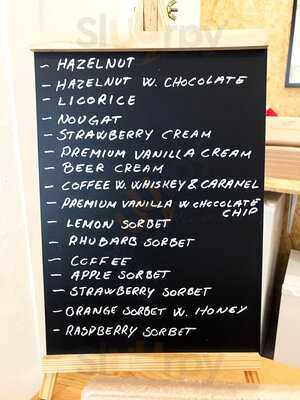 - HAZELNUT
- HAZELNUT W. CHOCOLATE
- LICORICE
- NOUGAT
- STRAWBERRY CREAM
- PREMIUM VANILLA CREAM
- BEER CREAM
- COFFEE W. WHISKEY & CARAMEL
- PREMIUM VANILLA W CHOCOLATE
CHIP
- LEMON SORBET
- RHUBARB SORBET
- COFFEE
- APPLE SORBET
- STRAWBERRY SORBET
- ORANGE SORBET W. HONEY
- RASPBERRY SORBET